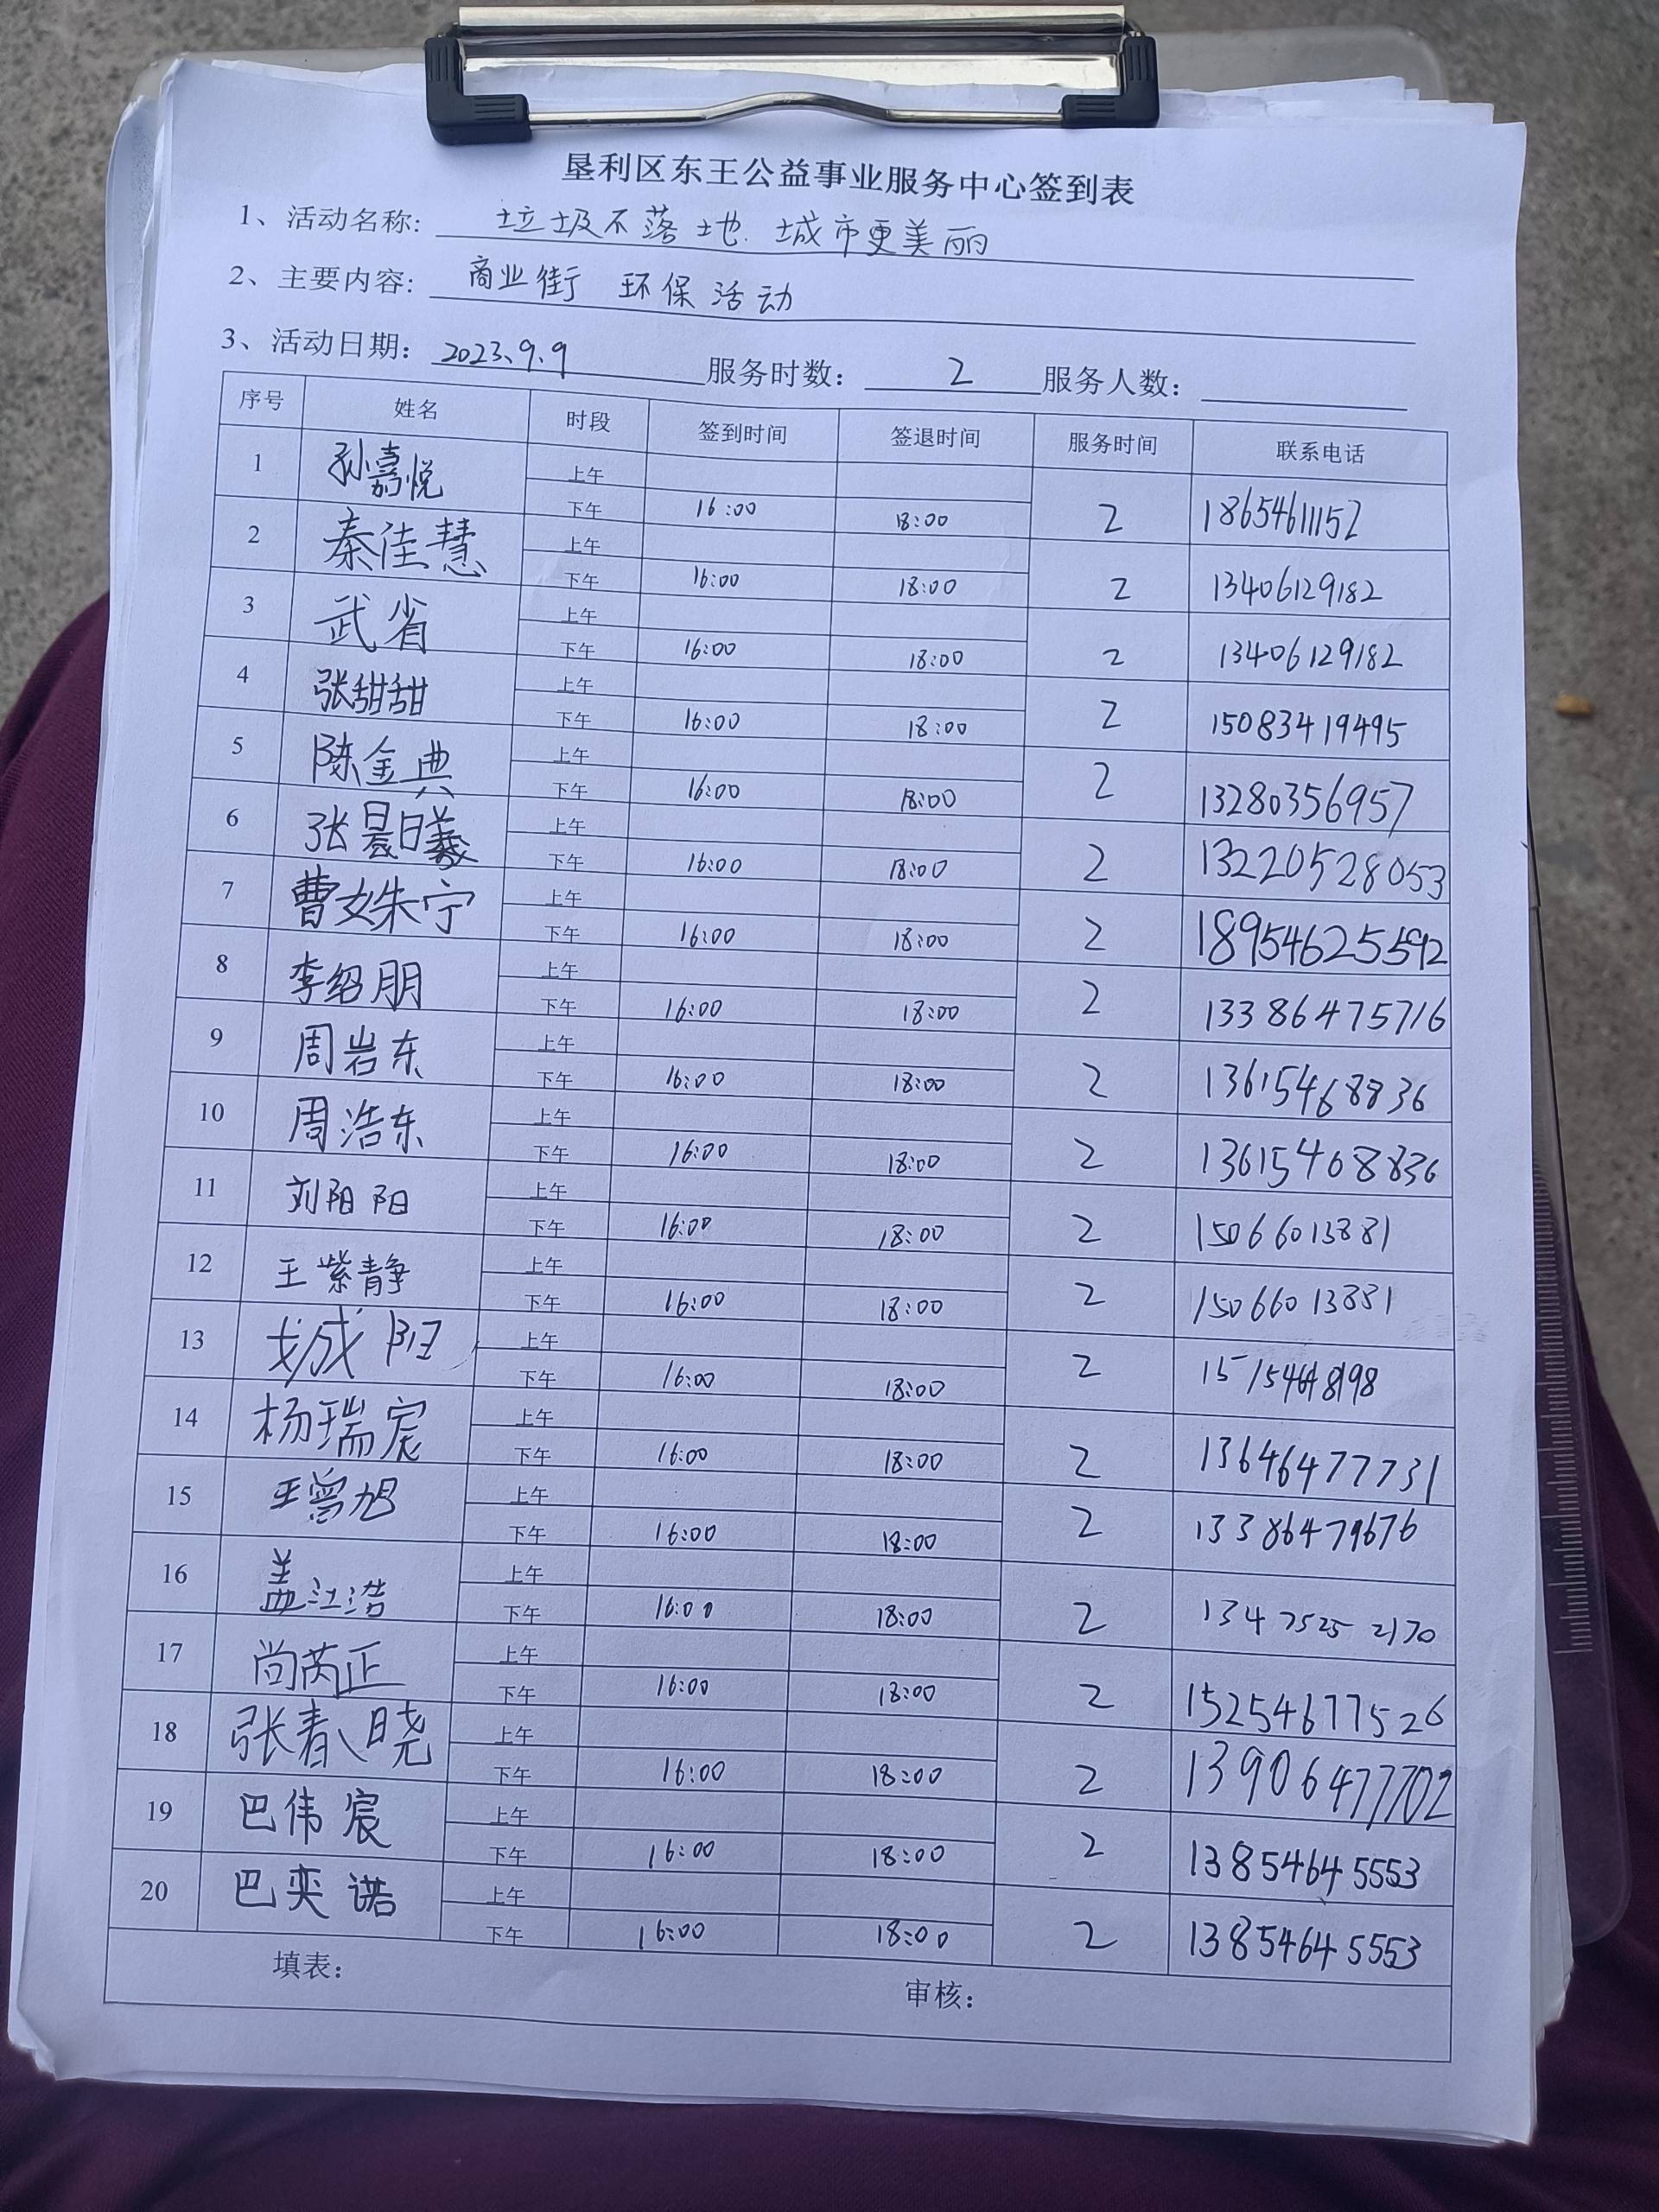 垦利区东王公益事业服务中心签到表
1、活动名称: 垃圾不落地.城市更美丽
2、主要内容: 商业街 环保活动
3、活动日期: 2023.9.9 服务时数: 2 服务人数:
序号 姓名 时段 签到时间 签退时间 服务时间 联系电话
1 孙嘉悦 上午
下午 16:00 18:00 2 18654611152
2 秦佳慧 上午
下午 16:00 18:00 2 13406129182
3 武省 上午
下午 16:00 18:00 2 13406129182
4 张甜甜 上午
下午 16:00 18:00 2 15083419495
5 陈金典 上午
下午 16:00 18:00 2 13280356957
6 张晨曦 上午
下午 16:00 18:00 2 13220528053
7 曹姝宁 上午
下午 16:00 18:00 2 18954625592
8 李绍朋 上午
下午 16:00 18:00 2 13386475716
9 周岩东 上午
下午 16:00 18:00 2 13615468836
10 周浩东 上午
下午 16:00 18:00 2 13615468836
11 刘阳阳 上午
下午 16:00 18:00 2 15066013881
12 王紫静 上午
下午 16:00 18:00 2 15066013881
13 上午
下午 16:00 18:00 2
14 杨瑞宸 上午
下午 16:00 18:00 2 13646477731
15 王曾旭 上午
下午 16:00 18:00 2 13386479676
16 盖江浩 上午
下午 16:00 18:00 2 13475252170
17 尚芮正 上午
下午 16:00 18:00 2 15254677526
18 张春晓 上午
下午 16:00 18:00 2 13906477702
19 巴伟宸 上午
下午 16:00 18:00 2 13854645553
20 巴奕诺 上午
下午 16:00 18:00 2 13854645553
填表: 审核: